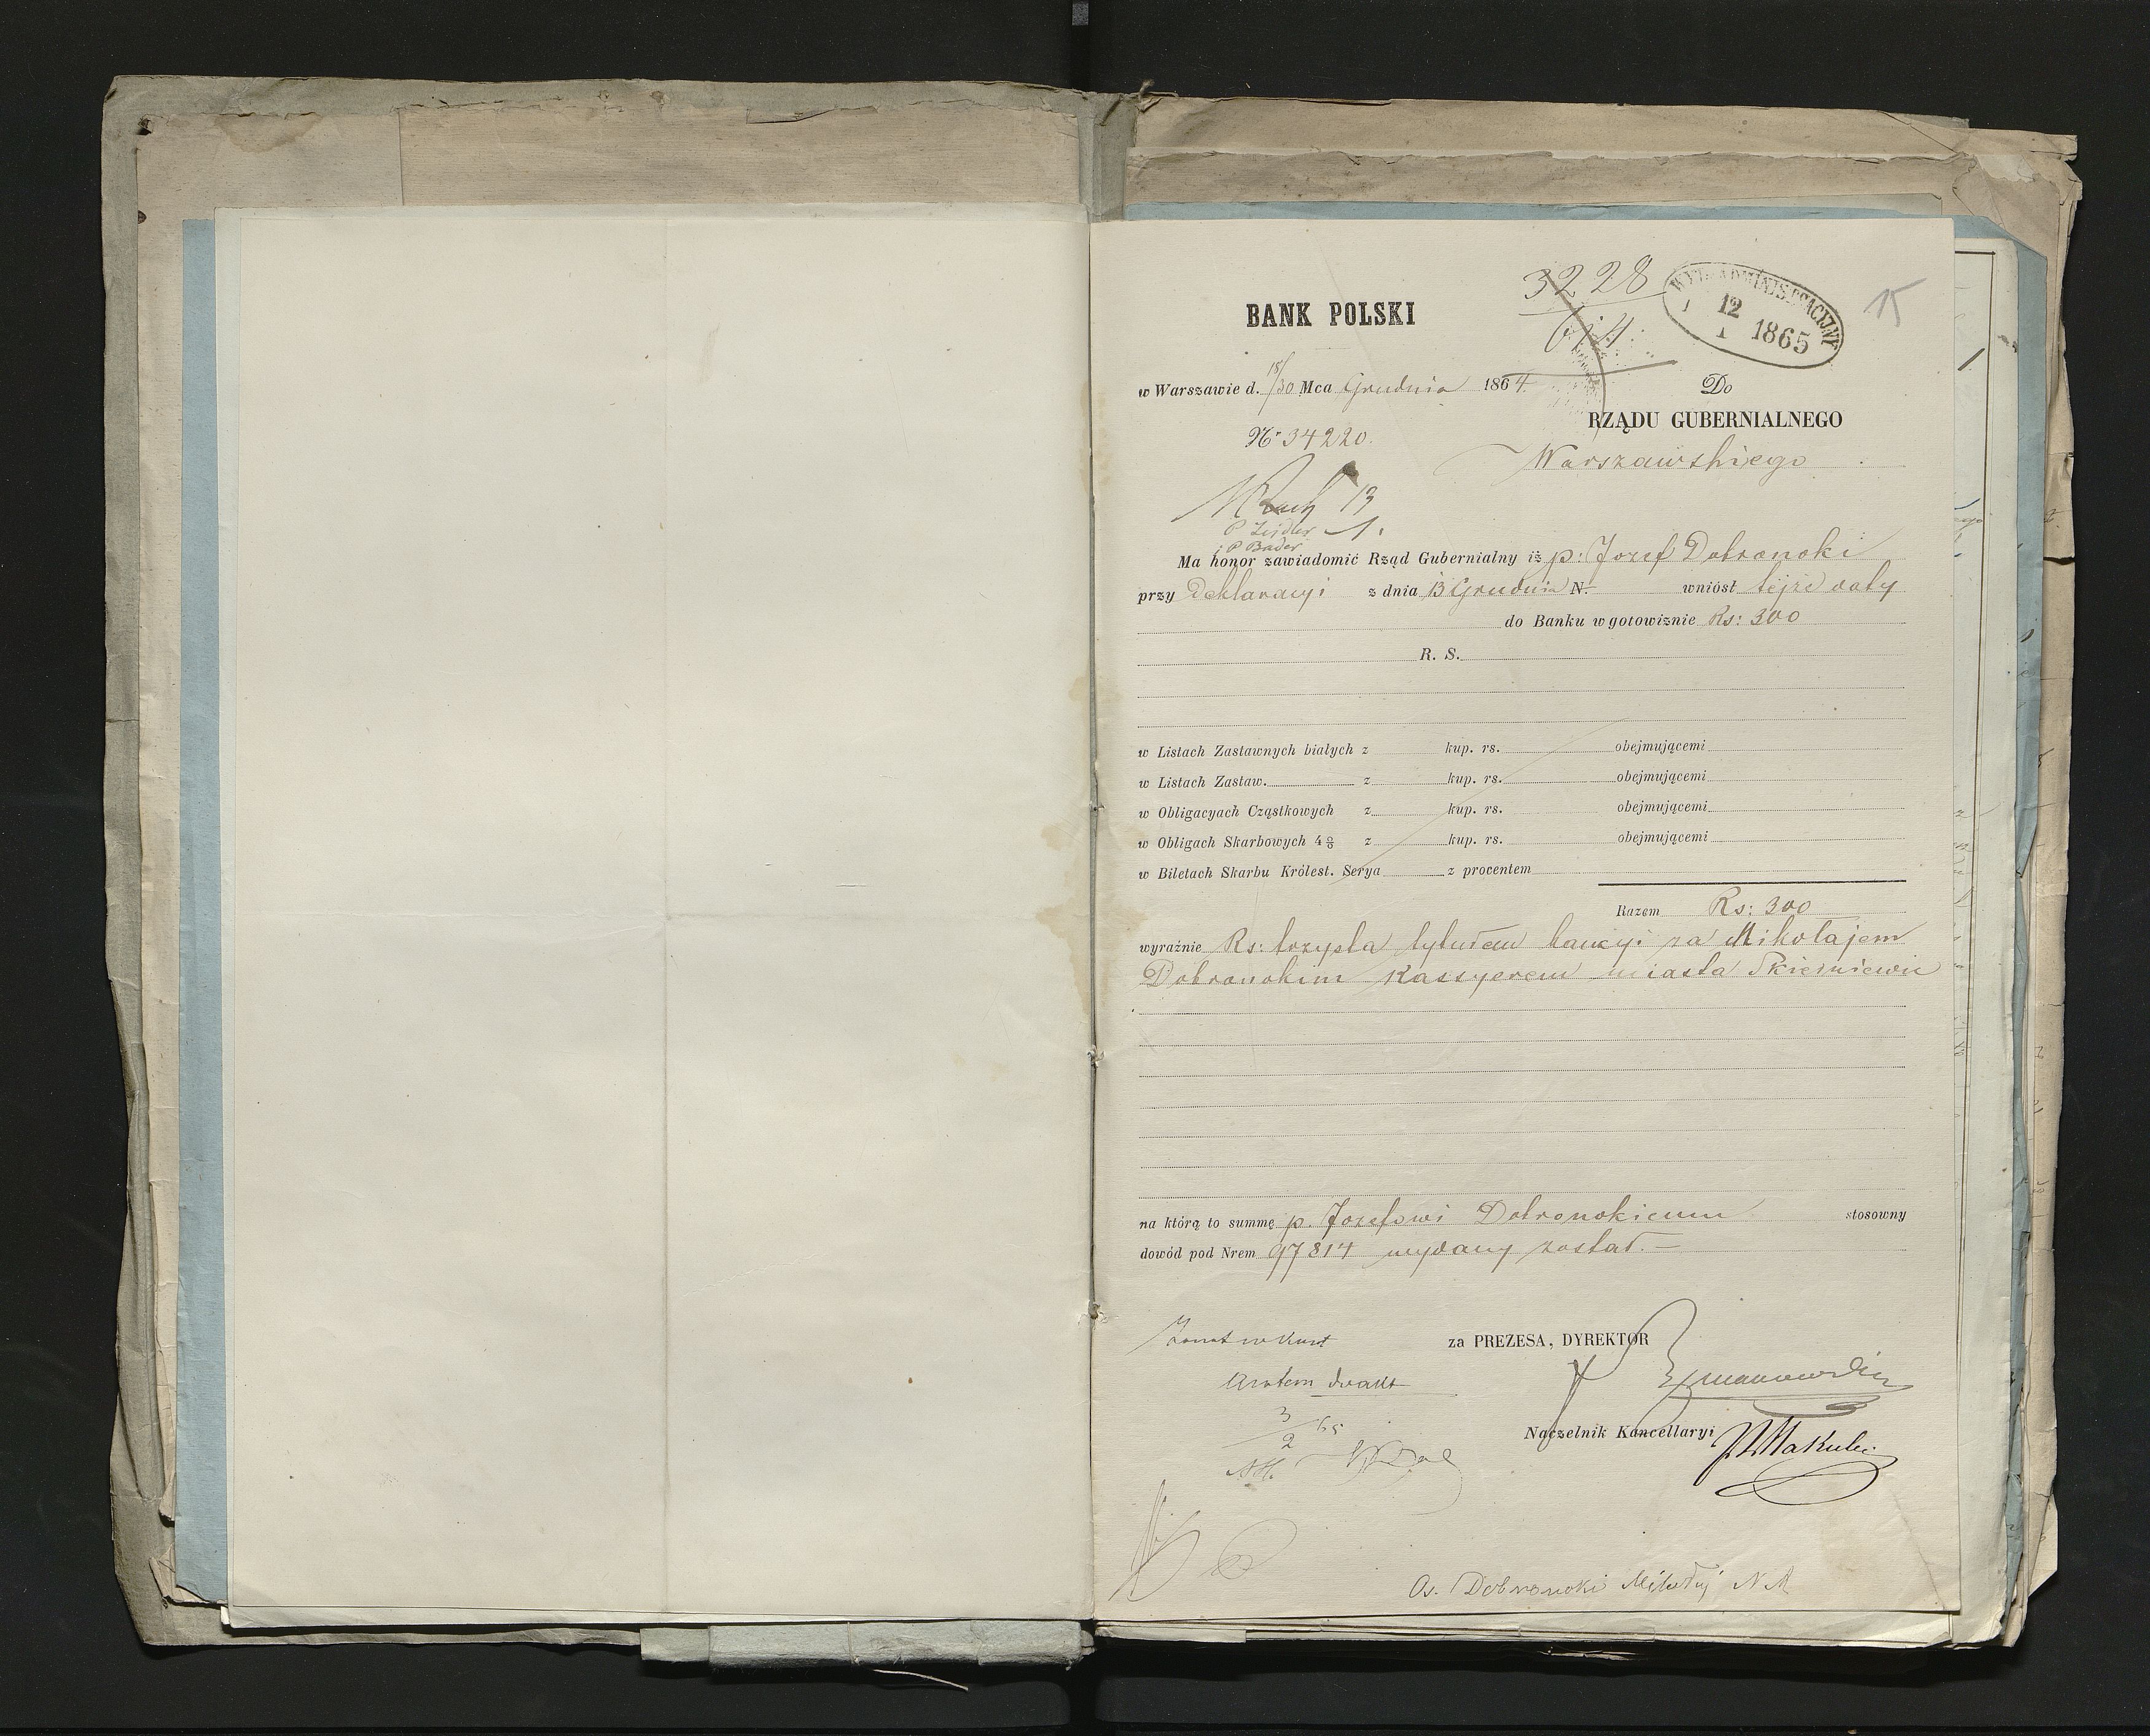 15
3228
WYD. ADMINISTRACYJNY
12
1 1865
BANK POLSKI
w Warszawie d. 18/30 Mca Grudnia 1864
Do
RZĄDU GUBERNIALNEGO
Warszawskiego
Nr 34220.
13
1.
P Zejdler
i P Bader
Ma honor zawiadomić Rząd Gubernialny iż p: Jozef Dobronoki
przy Deklaracyi z dnia 13 Grudnia N. wniósł tejże daty
do Banku w gotowiznie Rs: 300
R. S.
w Listach Zastawnych białych z kup. rs. obejmującemi
w Listach Zastaw. z kup. rs. obejmującemi
w Obligacyach Cząstkowych z kup. rs. obejmującemi
w Obligach Skarbowych 4% z kup. rs. obejmującemi
w Biletach Skarbu Królest. Serya z procentem
Razem Rs: 300
wyraźnie Rs: trzysta tytułem kaucyi za Mikołajem
Dobronokim Kassyerem miasta Skierniewic
na którą to summę p. Jozefowi Dobronokiemu stosowny
dowód pod Nrem 97814 wydany został.—
za PREZESA, DYREKTOR
3/2 65
Naczelnik Kancellaryi
Dobronoki Mikołaj